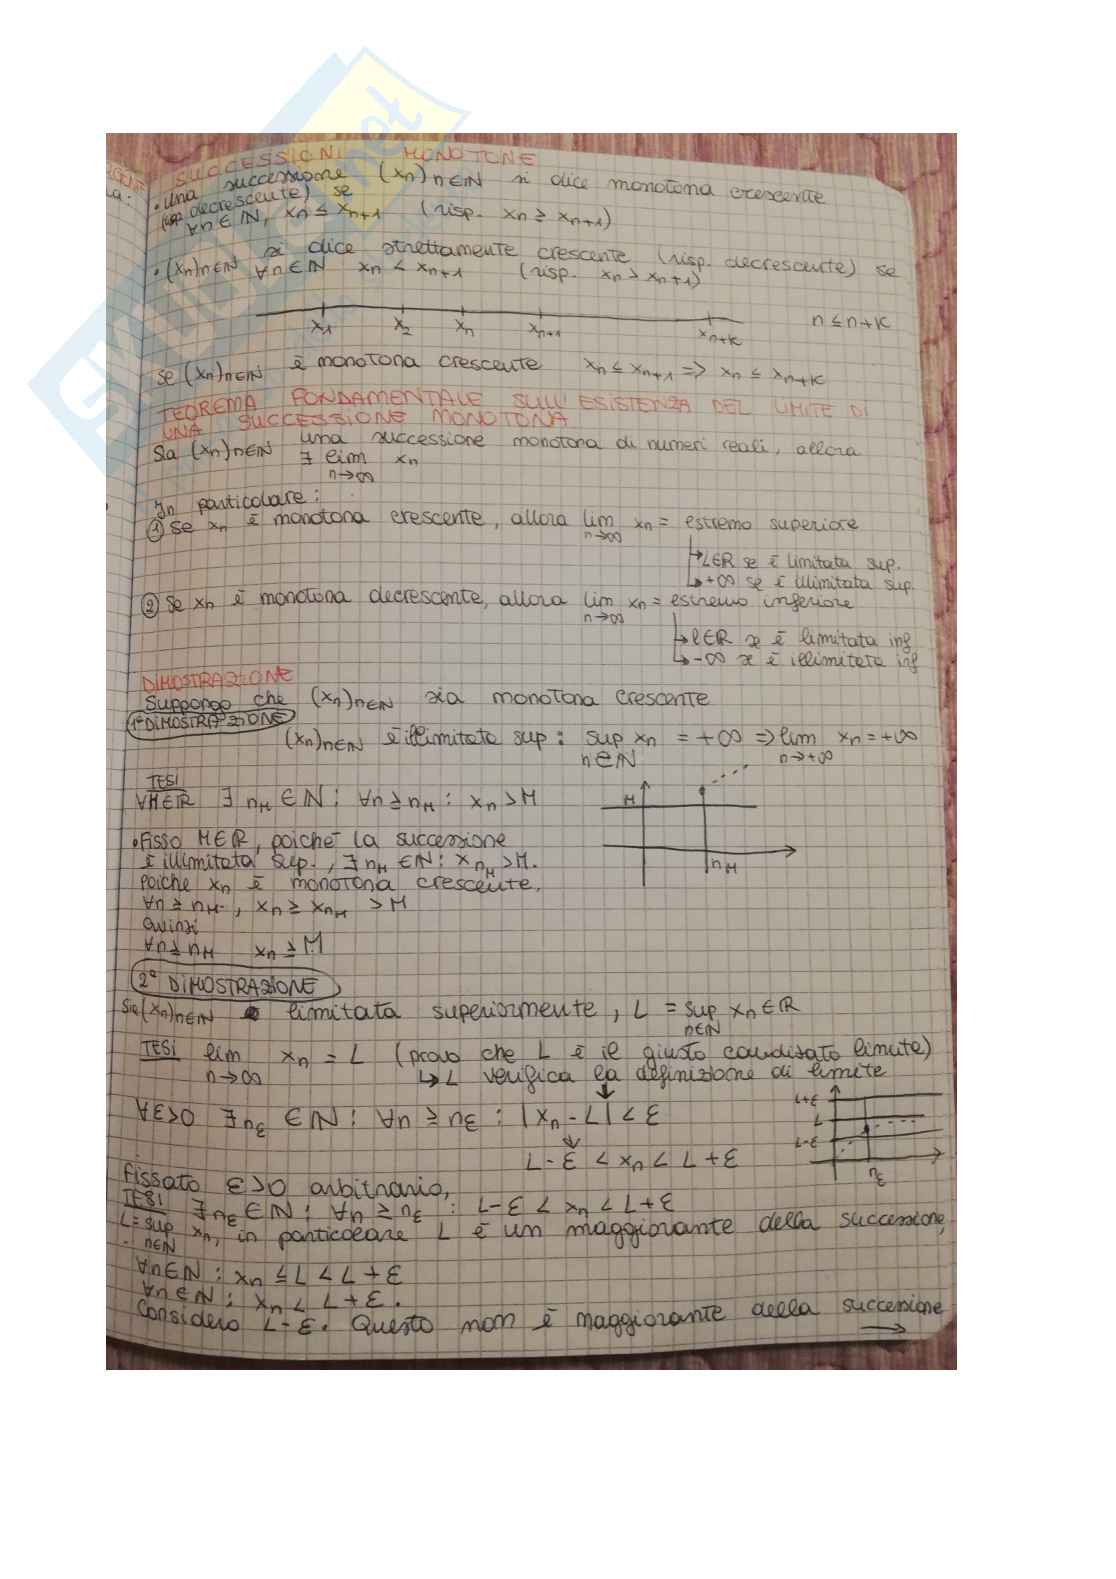 SUCCESSIONI MONOTONE
• Una successione (xn)n∈ℕ si dice monotona crescente
(risp decrescente) se
∀n∈ℕ, xn ≤ xn+1 (risp. xn ≥ xn+1)
• (xn)n∈ℕ si dice strettamente crescente (risp. decrescente) se
∀n∈ℕ xn < xn+1 (risp. xn > xn+1)
x1 x2 xn xn+1 xn+k n ≤ n+k
se (xn)n∈ℕ è monotona crescente xn ≤ xn+1 => xn ≤ xn+k
TEOREMA FONDAMENTALE SULL'ESISTENZA DEL LIMITE DI
UNA SUCCESSIONE MONOTONA
Sia (xn)n∈ℕ una successione monotona di numeri reali, allora
∃ lim xn
n→∞
In particolare:
① Se xn è monotona crescente, allora lim xn = estremo superiore
n→∞
↳ L∈ℝ se è limitata sup.
↳ +∞ se è illimitata sup.
② Se xn è monotona decrescente, allora lim xn = estremo inferiore
n→∞
↳ l∈ℝ se è limitata inf
↳ -∞ se è illimitata inf
DIMOSTRAZIONE
Suppongo che (xn)n∈ℕ sia monotona crescente
1ª DIMOSTRAZIONE
(xn)n∈ℕ è illimitata sup: sup xn = +∞ => lim xn = +∞
n∈ℕ n→+∞
TESI
∀M∈ℝ ∃ nM ∈ℕ: ∀n ≥ nM: xn > M
M
nM
• Fisso M∈ℝ, poiché la successione
è illimitata sup., ∃ nM ∈ℕ: xnM > M.
poiche xn è monotona crescente,
∀n ≥ nM, xn ≥ xnM > M
Quindi
∀n ≥ nM xn ≥ M
2ª DIMOSTRAZIONE
Sia (xn)n∈ℕ limitata superiormente, L = sup xn ∈ℝ
n∈ℕ
TESI lim xn = L (provo che L è il giusto candidato limite)
n→∞ ↳ L verifica la definizione di limite
∀ε>0 ∃ nε ∈ℕ: ∀n ≥ nε: |xn - L| < ε
L-ε < xn < L+ε
L+ε
L
L-ε
nε
Fissato ε>0 arbitrario,
TESI ∃ nε ∈ℕ: ∀n ≥ nε: L-ε < xn < L+ε
L = sup xn, in particolare L è un maggiorante della successione,
n∈ℕ
∀n∈ℕ: xn ≤ L < L+ε
∀n∈ℕ: xn < L+ε.
Considero L-ε. Questo non è maggiorante della successione
→